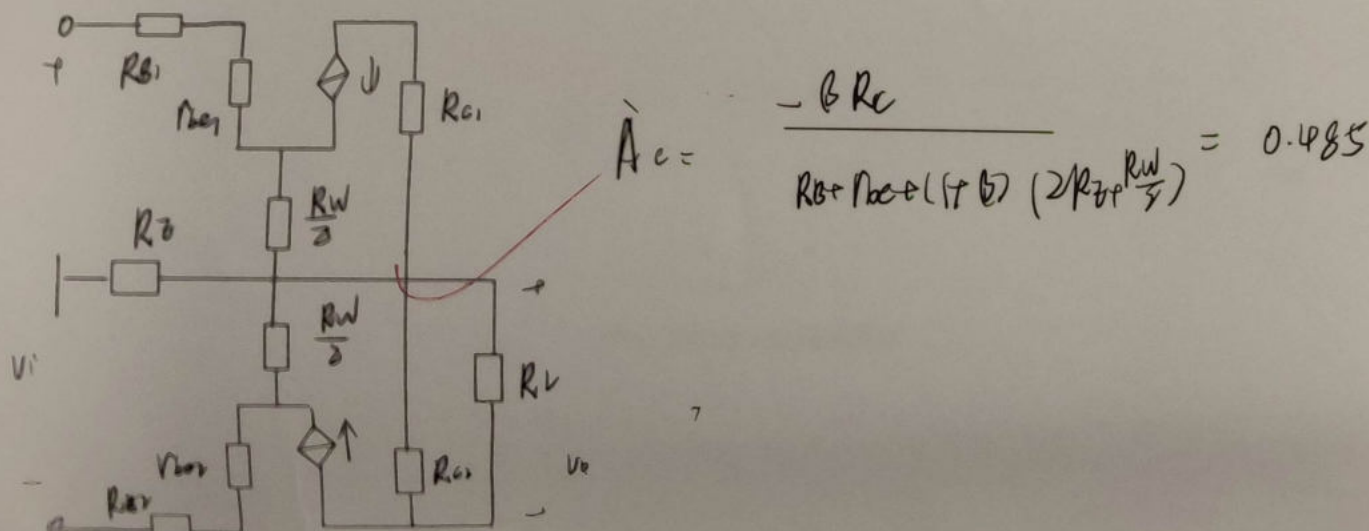 +
RB1
rbe1
↓
Rc1
RW/2
RZ
+
RW/2
Vi
RL
rbe2
↑
Rc2
Vo
-
RB2
-
Ȧc = -βRc / RB+rbe+(1+β)(2RZ+RW/2) = 0.485